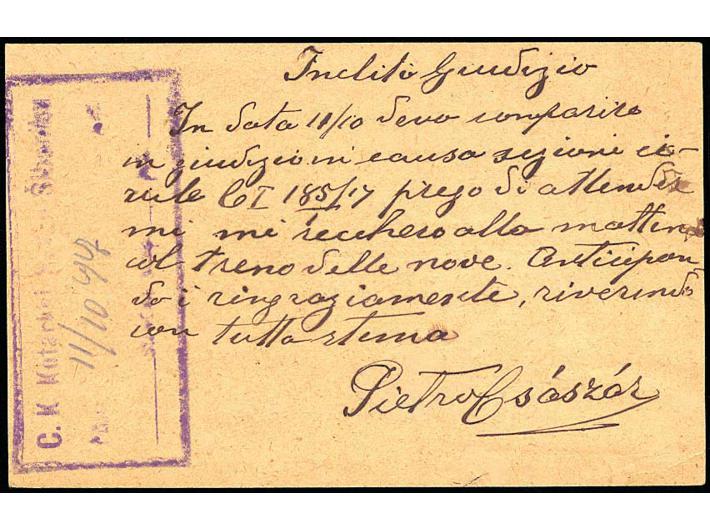 Inclito Giudizio
In data 11/10 devo comparire
in giudizio in causa sezioni ci-
vile CI 185/17 prego di attender
mi mi recchero alla mattina
col treno delle nove. Anticipan
do i ringraziamente, riverindo
con tutta stima
Pietro Császár
C. K. Kotarski
11/10 917